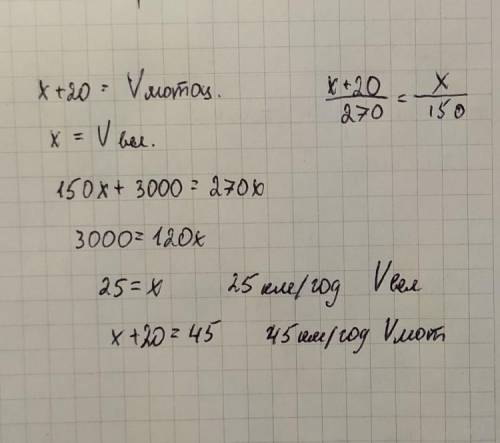 x+20 = Vмотоц.
x+20/270 = x/150
x = Vвел.
150x + 3000 = 270x
3000 = 120x
25 = x 25 км/год Vвел
x+20 = 45 45 км/год Vмот